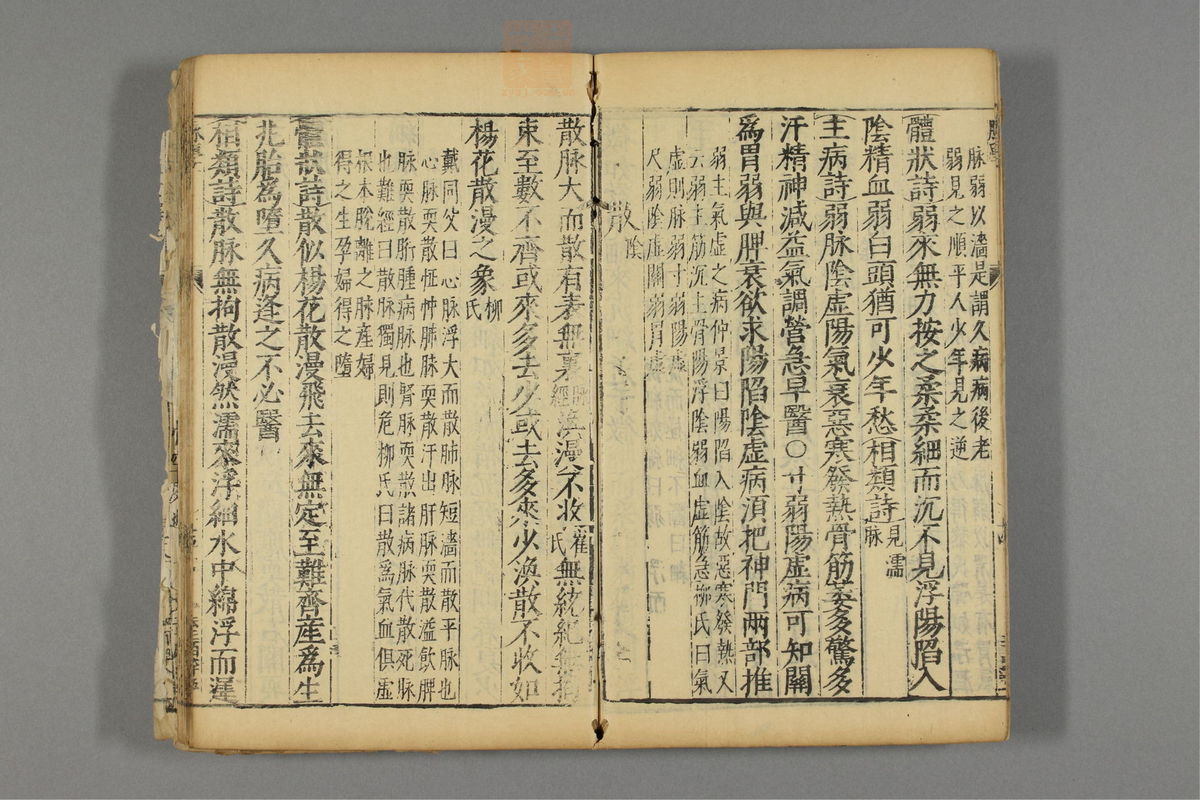 脉弱以濇是謂久病病後老
弱見之順平人少年見之逆
體狀詩弱來無力按之柔柔細而沉不見浮陽陷入
陰精血弱白頭猶可少年愁相類詩見濡
脉
主病詩弱脉陰虛陽氣衰惡寒發熱骨筋萎多驚多
汗精神減益氣調營急早醫○寸弱陽虛病可知關
爲胃弱與脾衰欲求陽陷陰虛病湏把神門兩部推
弱主氣虛之病仲景曰陽陷入陰故惡寒發熱又
云弱主筋沉主骨陽浮陰弱血虛筋急柳氏曰氣
虛則脉弱寸弱陽虛
尺弱陰虛關弱胃虛
散陰
散脉大而散有表無裏脉
經渙漫不收崔
氏無統紀無拘
束至數不齊或來多去少或去多來少渙散不收如
楊花散漫之象柳
氏
戴同父曰心脉浮大而散肺脉短濇而散平脉也
心脉耎散怔忡肺脉耎散汗出肝脉耎散溢飲脾
脉耎散胻腫病脉也腎脉耎散諸病脉代散死脉
也難經曰散脉獨見則危柳氏曰散爲氣血俱虛
根本脫離之脉產婦
得之生孕婦得之墮
體狀詩散似楊花散漫飛去來無定至難齊產爲生
兆胎為墮久病逢之不必醫
相類詩散脉無拘散漫然濡來浮細水中綿浮而遲